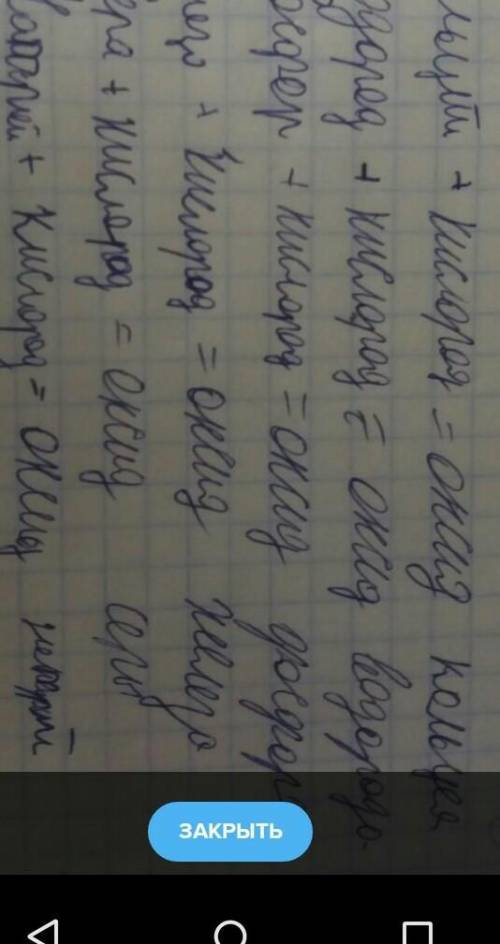 льций + кислород = оксид кольцея
дород + кислород = оксид водорода
осфер + кислород = оксид фосфора
лезо + кислород = оксид железо
ера + кислород = оксид серы
+ кислород = оксид
ЗАКРЫТЬ